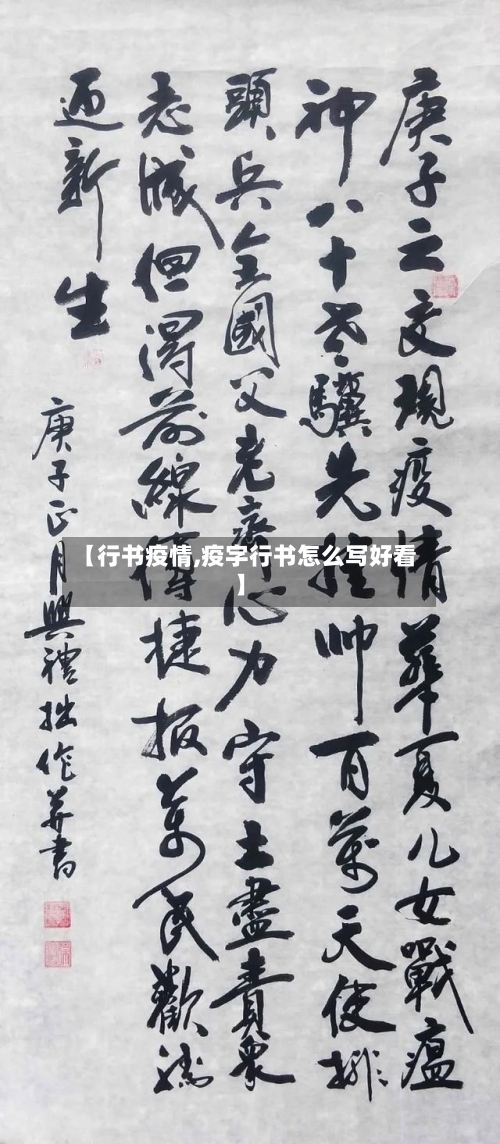 庚子之交現疫情華夏儿女戰瘟
神八十老驥先帅百萬天使排
頭兵全國父老齊心力守土盡責衆
志城但得前線傳捷报萬民歡
迎新生
庚子正月興禮拙作并書
【行书疫情,疫字行书怎么写好看
】